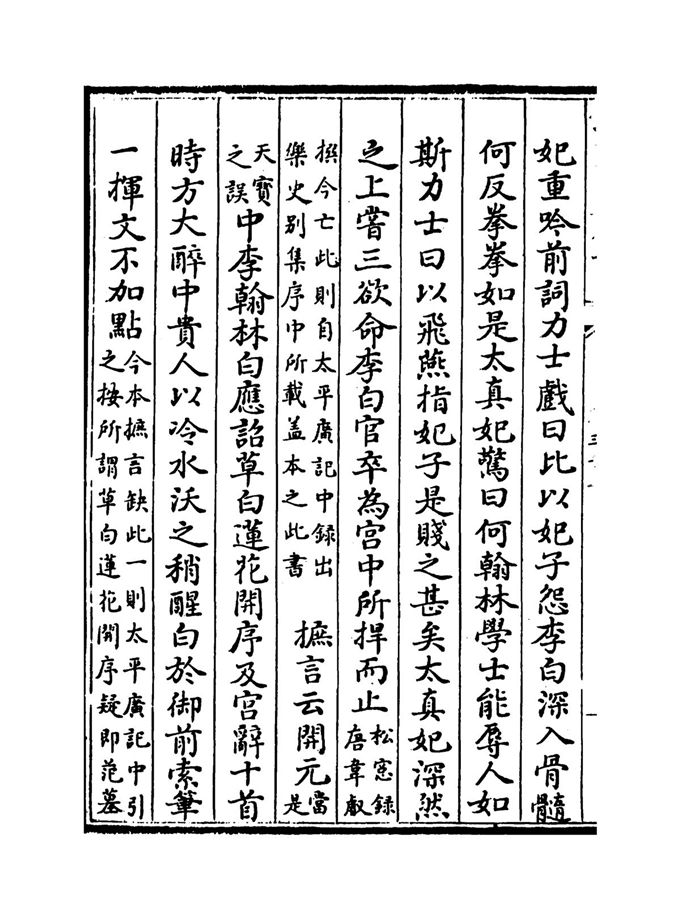 妃重吟前詞力士戲曰比以妃子怨李白深入骨髓
何反拳拳如是太真妃驚曰何翰林學士能辱人如
斯力士曰以飛燕指妃子是賤之甚矣太真妃深然
之上嘗三欲命李白官卒為宫中所捍而止松窓録唐韋叡
撰今亡此則自太平廣記中録出樂史别集序中所載盖本之此書　摭言云開元當是
天寳之誤中李翰林白應詔草白蓮花開序及宫辭十首
時方大醉中貴人以冷水沃之稍醒白於御前索筆
一揮文不加點今本摭言缺此一則太平廣記中引之按所謂草白蓮花開序疑即范墓